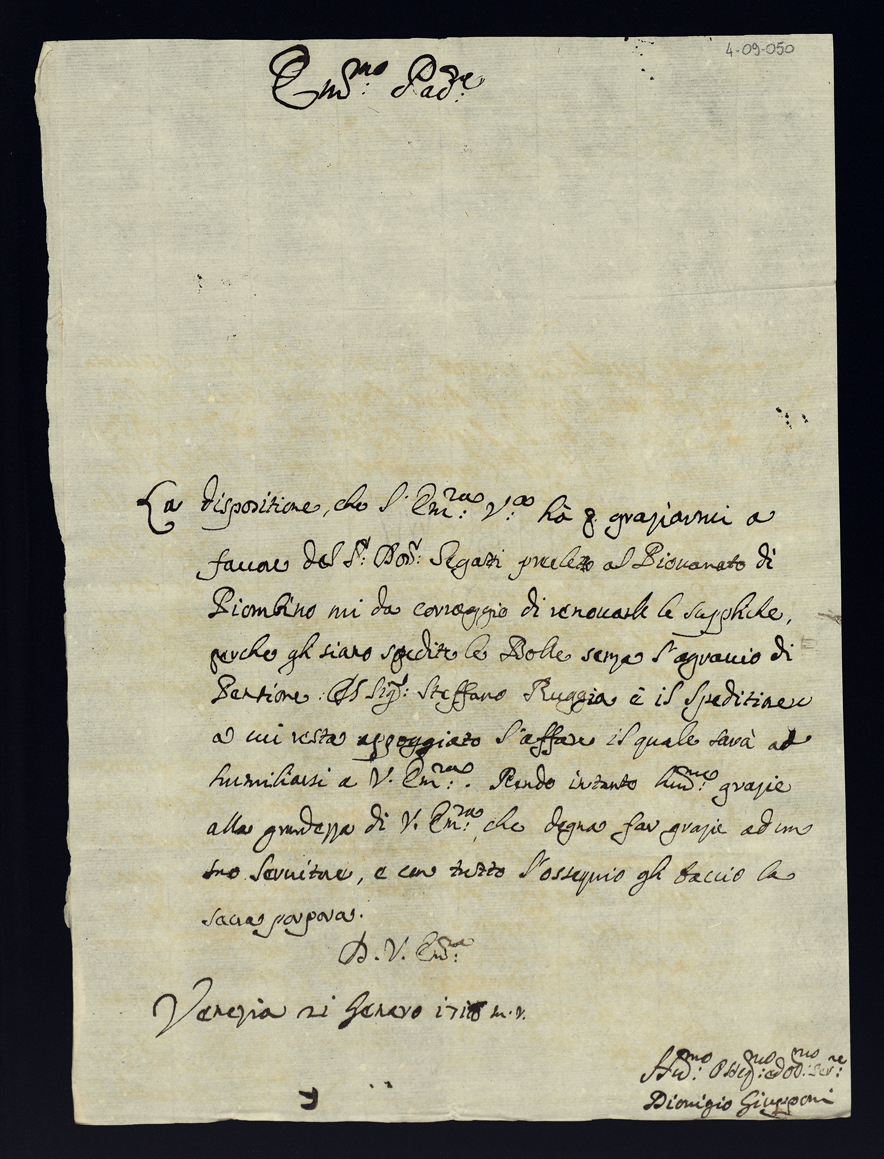 4-09-050
Em.mo Pad.re
La dispositione, che l'Em.za V.a hà p. graziarmi a
favore del S.r Dot.r Segatti prceletto al Piovanato di
Piombino mi da coraggio di renovarle le suppliche,
perche gli siano spedite le Bolle senza l'agravio di
Pensione. Il Sig.r Steffano Ruggia è il Speditinere
a cui resta appoggiato l'affare il quale sarà ad
humiliarsi a V. Em.za. Rendo intanto hum.me grazie
alla grandezza di V. Em.za, che degna far grazie ad un
suo Servitore, e con tutto l'ossequio gli baccio la
sacra porpora.
D. V. Em.za
Venezia 21 Genaro m.v.
Hu.mo Osseq.mo ed Ob.mo Ser.re
Dionigio Giupponi